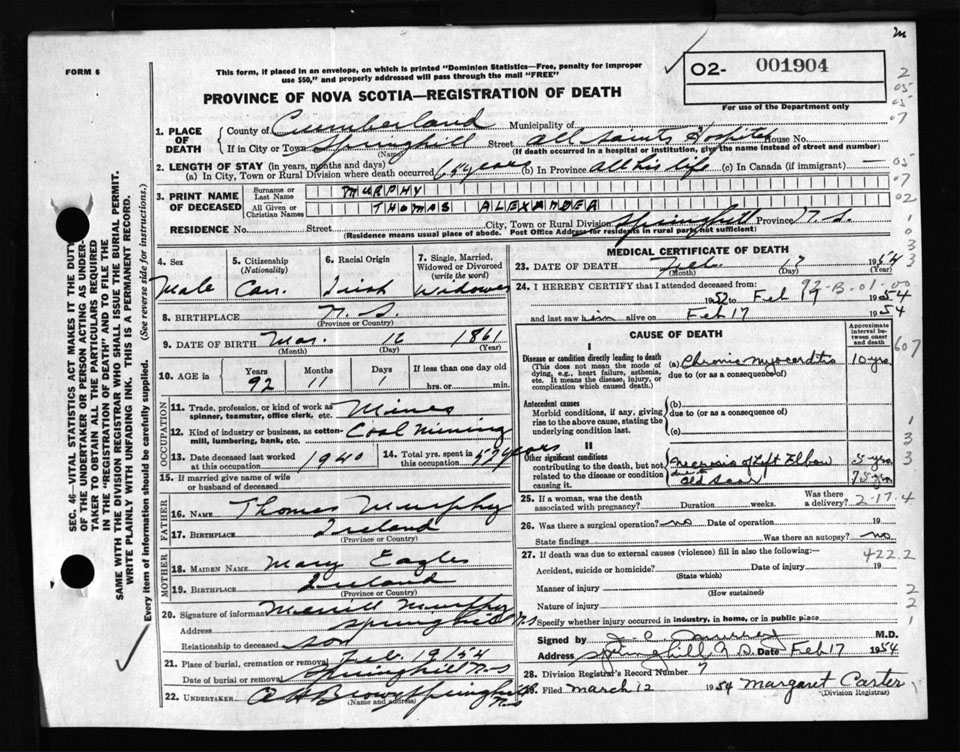 m
FORM 6
This form, if placed in an envelope, on which is printed "Dominion Statistics—Free, penalty for improper
use $50," and properly addressed will pass through the mail "FREE"
O2- 001904
For use of the Department only
PROVINCE OF NOVA SCOTIA—REGISTRATION OF DEATH
1. PLACE OF DEATH
County of Cumberland Municipality of
If in City or Town Springhill Street All Saints Hospital House No.
(Name) (If death occurred in a hospital or institution, give the name instead of street and number)
2. LENGTH OF STAY (in years, months and days)
(a) In City, Town or Rural Division where death occurred 64 years (b) In Province All his life (c) In Canada (if immigrant) —
3. PRINT NAME OF DECEASED
Surname or Last Name MURPHY
All Given or Christian Names THOMAS ALEXANDER
RESIDENCE No. Street City, Town or Rural Division Springhill Province N.S.
(Residence means usual place of abode. Post Office Address for residents in rural parts not sufficient)
4. Sex
Male
5. Citizenship
(Nationality)
Can.
6. Racial Origin
Irish
7. Single, Married, Widowed or Divorced
(write the word)
Widower
8. BIRTHPLACE N. S.
(Province or Country)
9. DATE OF BIRTH Mar. 16 1861
(Month) (Day) (Year)
10. AGE in
Years Months Days If less than one day old
92 11 1 hrs. or min.
OCCUPATION
11. Trade, profession, or kind of work as
spinner, teamster, office clerk, etc.
12. Kind of industry or business, as cotton-
mill, lumbering, bank, etc. Coal Mining
13. Date deceased last worked
at this occupation 1940
14. Total yrs. spent in
this occupation 57 years
15. If married give name of wife
or husband of deceased
FATHER
16. NAME Thomas Murphy
17. BIRTHPLACE Ireland
(Province or Country)
MOTHER
18. MAIDEN NAME Mary Eagles
19. BIRTHPLACE Ireland
(Province or Country)
20. Signature of informant Merrill Murphy
Address Springhill N.S
Relationship to deceased son
21. Place of burial, cremation or removal Feb. 19/54
Date of burial or removal Springhill N-S
22. UNDERTAKER A H Brown Springhill N-S
(Name and address)
MEDICAL CERTIFICATE OF DEATH
23. DATE OF DEATH Feb. 17 1954
(Month) (Day) (Year)
24. I HEREBY CERTIFY that I attended deceased from:
92-B-01-00
1952 to Feb 17 1954
and last saw him alive on Feb 17 1954
CAUSE OF DEATH
Approximate interval between onset and death
I
Disease or condition directly leading to death
(This does not mean the mode of
dying, e.g., heart failure, asthenia,
etc. It means the disease, injury, or
complication which caused death.)
(a) Chronic Myocarditis 10 yrs.
due to (or as a consequence of)
Antecedent causes
Morbid conditions, if any, giving
rise to the above cause, stating the
underlying condition last.
(b)
due to (or as a consequence of)
(c)
II
Other significant conditions
contributing to the death, but not
related to the disease or condition
causing it.
Necrosis of Left Elbow 5 yrs.
due to
Old Scar 75 yrs
25. If a woman, was the death
associated with pregnancy? Duration weeks. Was there a delivery? 2-17.4
26. Was there a surgical operation? no Date of operation 19
State findings Was there an autopsy? no
27. If death was due to external causes (violence) fill in also the following:—
422.2
Accident, suicide or homicide? Date of injury 19
(State which)
Manner of injury
(How sustained)
Nature of injury
Specify whether injury occurred in industry, in home, or in public place
Signed by J. C. Murray M.D.
Address Springhill, N.S. Date Feb 17 1954
28. Division Registrar's Record Number 7
29. Filed March 12 1954 Margaret Carter
(Division Registrar)
SEC. 46—VITAL STATISTICS ACT MAKES IT THE DUTY
OF THE UNDERTAKER OR PERSON ACTING AS UNDER-
TAKER TO OBTAIN ALL THE PARTICULARS REQUIRED
IN THE "REGISTRATION OF DEATH" AND TO FILE THE
SAME WITH THE DIVISION REGISTRAR WHO SHALL ISSUE THE BURIAL PERMIT.
WRITE PLAINLY WITH UNFADING INK. THIS IS A PERMANENT RECORD.
Every item of information should be carefully supplied. (See reverse side for instructions.)
2
05
05
07
05
07
02
1
0
3
3
607
1
3
3
2
2
1